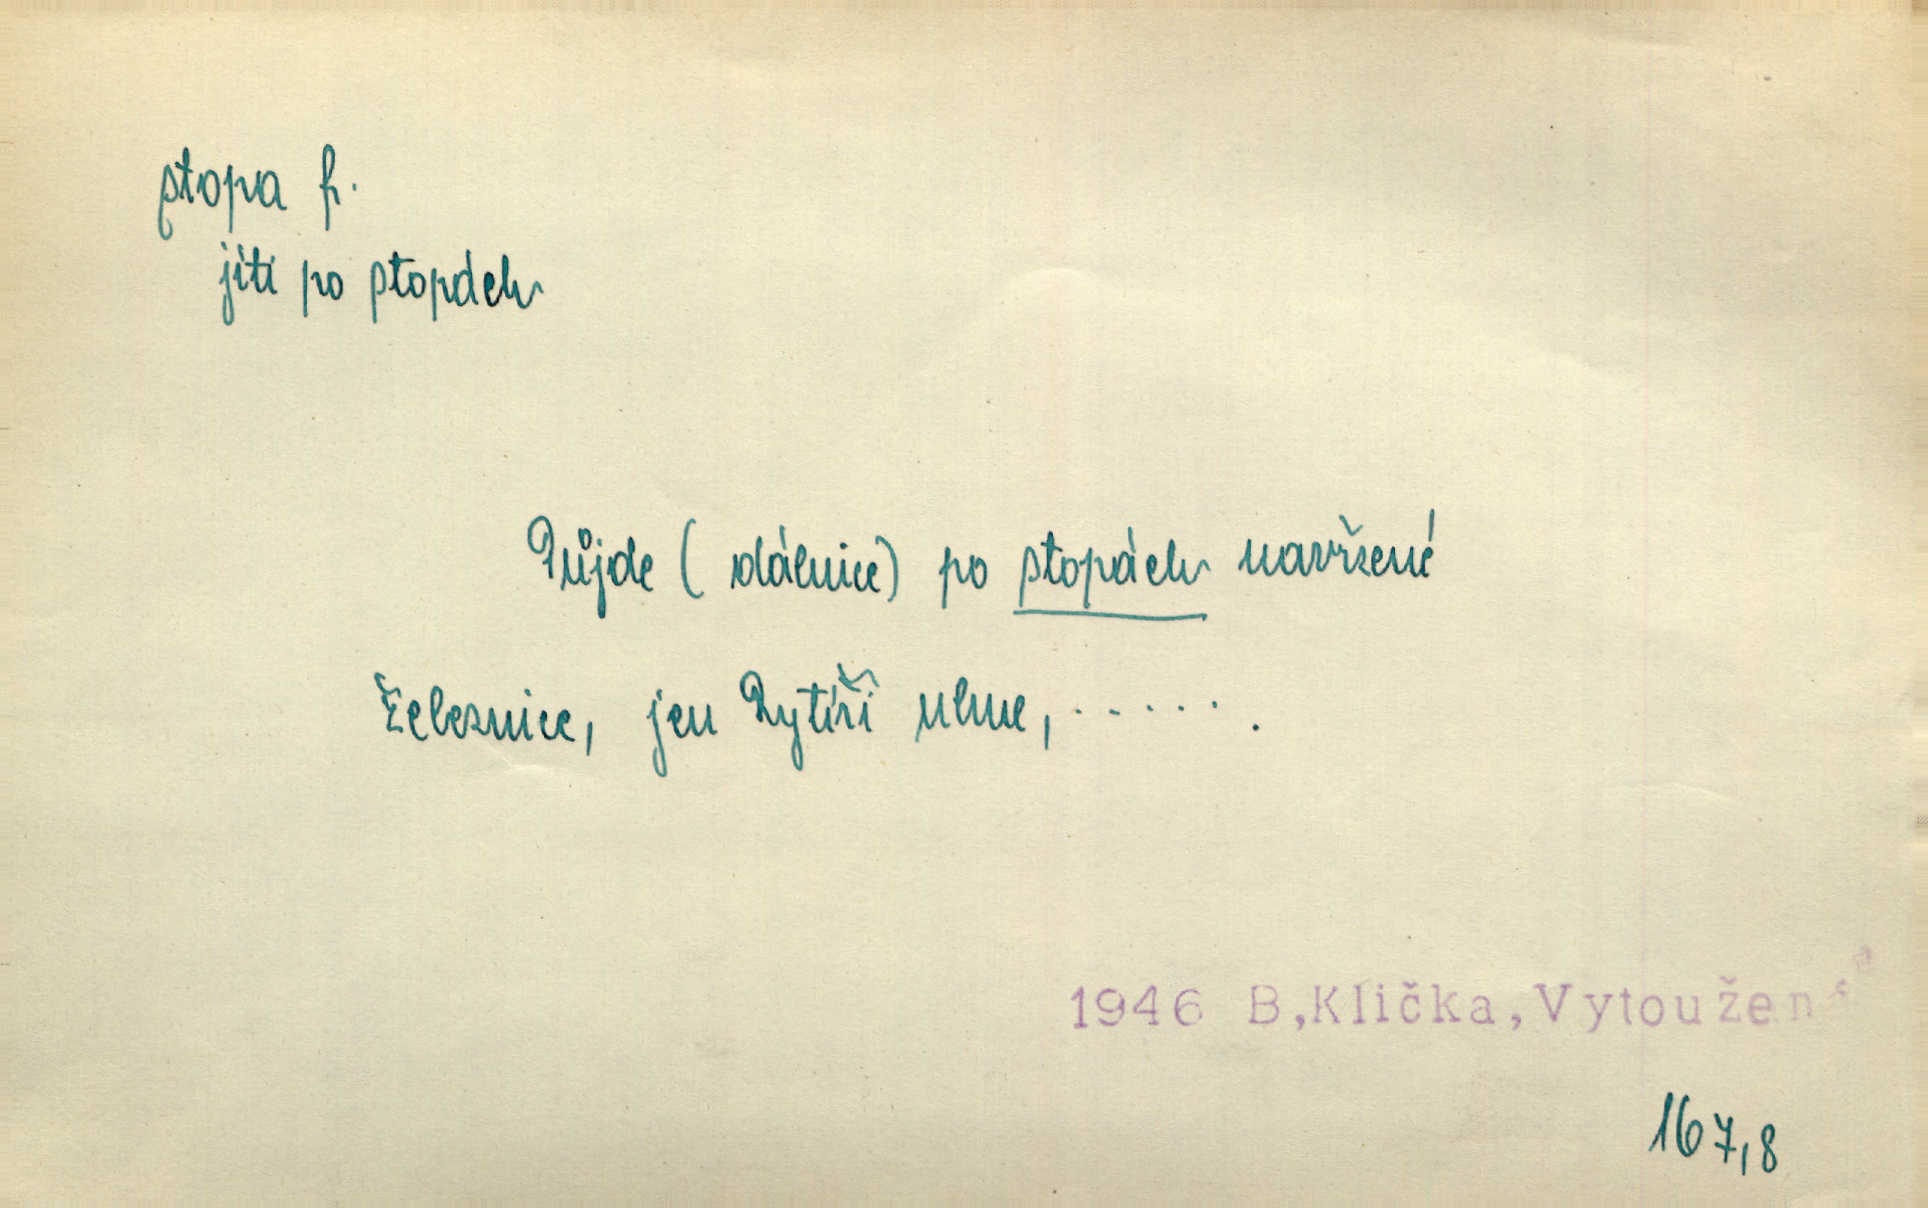 stopa f.
jíti po stopách
Půjde (dálnice) po stopách navržené
železnice, jen Rytíři uhne, ...... .
1946 B,Klička,Vytoužené
167,8